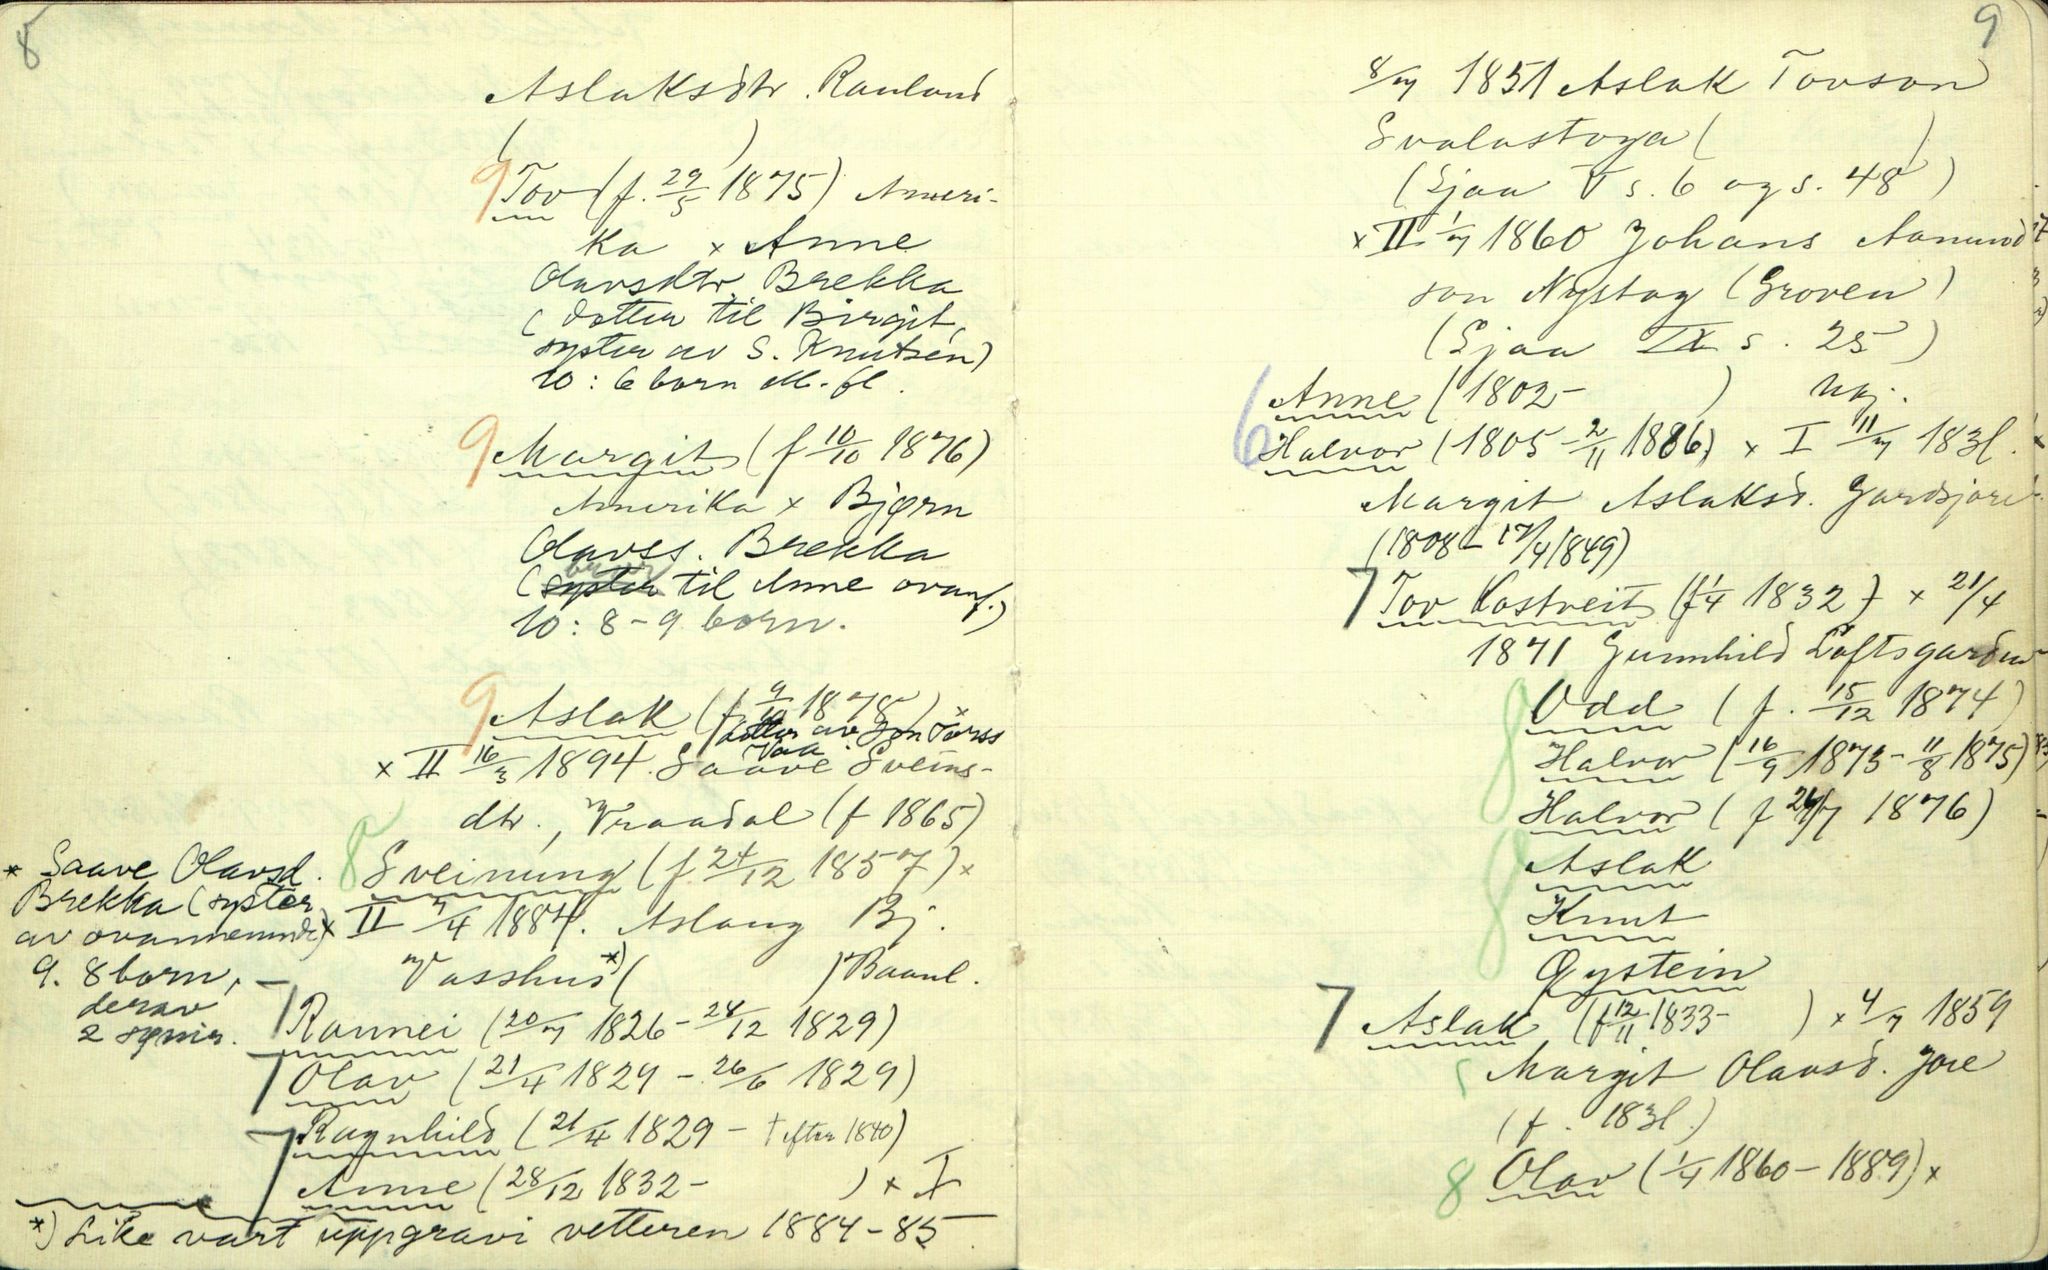 8
Aslaksdtr. Rauland
( )
9 Tov (f. 29/5 1875) Ameri-
ka × Anne
Olavsdtr. Brekka
(dotter til Birgit,
syster av S. Knutsen)
10: 6 born M. fl.
9 Margit (f 10/10 1876)
Amerika × Bjørn
Olavss. Brekka
(syster til Anne ovanf.)
10: 8-9 born.
9 Aslak (f 9/10 1878) ×
dotter av Jon Torss
Vaa
× II 16/3 1894. Saave Sveins-
dtr., Vraadal (f 1865)
8 Sveinung (f. 24/12 1857) ×
II 7/4 1884. Aslaug Bj.
Vasshus *) ( ) Baanl.
* Saave Olavsd.
Brekka (syster
av ovannemnde) ×
9. 8 born, —
derav
2 synir.
7 Rannei (20/7 1826 - 24/12 1829)
7 Olav (21/4 1829 - 26/6 1829)
Ragnhild (21/4 1829 - † efter 1840)
7 Anne (28/12 1832 - ) × I
*) Like vart uppgravi vetteren 1884-85
9
8/7 1851 Aslak Tovson
Svalastoga ( )
(Sjaa V s. 6 og s. 48)
× II 1/7 1860 Johans Aamund
son Nystog (Groven)
(Sjaa IX s. 25)
6 Anne (1802- ) ug.
Halvor (1805 - 2/11 1886) × I 11/7 1831.
Margit Aslaksd. Gardsjord
(1808 - 17/4 1849)
7 Tov Kostveit (f 1/4 1832) × 21/4
1871 Gunnhild Loftsgarden
8 Odd (f. 15/12 1874)
Halvor (16/9 1873 - 11/8 1875)
Halvor (f 24/7 1876)
8 Aslak
Knut
Øystein
7 Aslak (f 12/11 1833- ) × 4/7 1859
Margit Olavsd. Jore
(f. 1831.)
8 Olav (1/4 1860 - 1889) ×